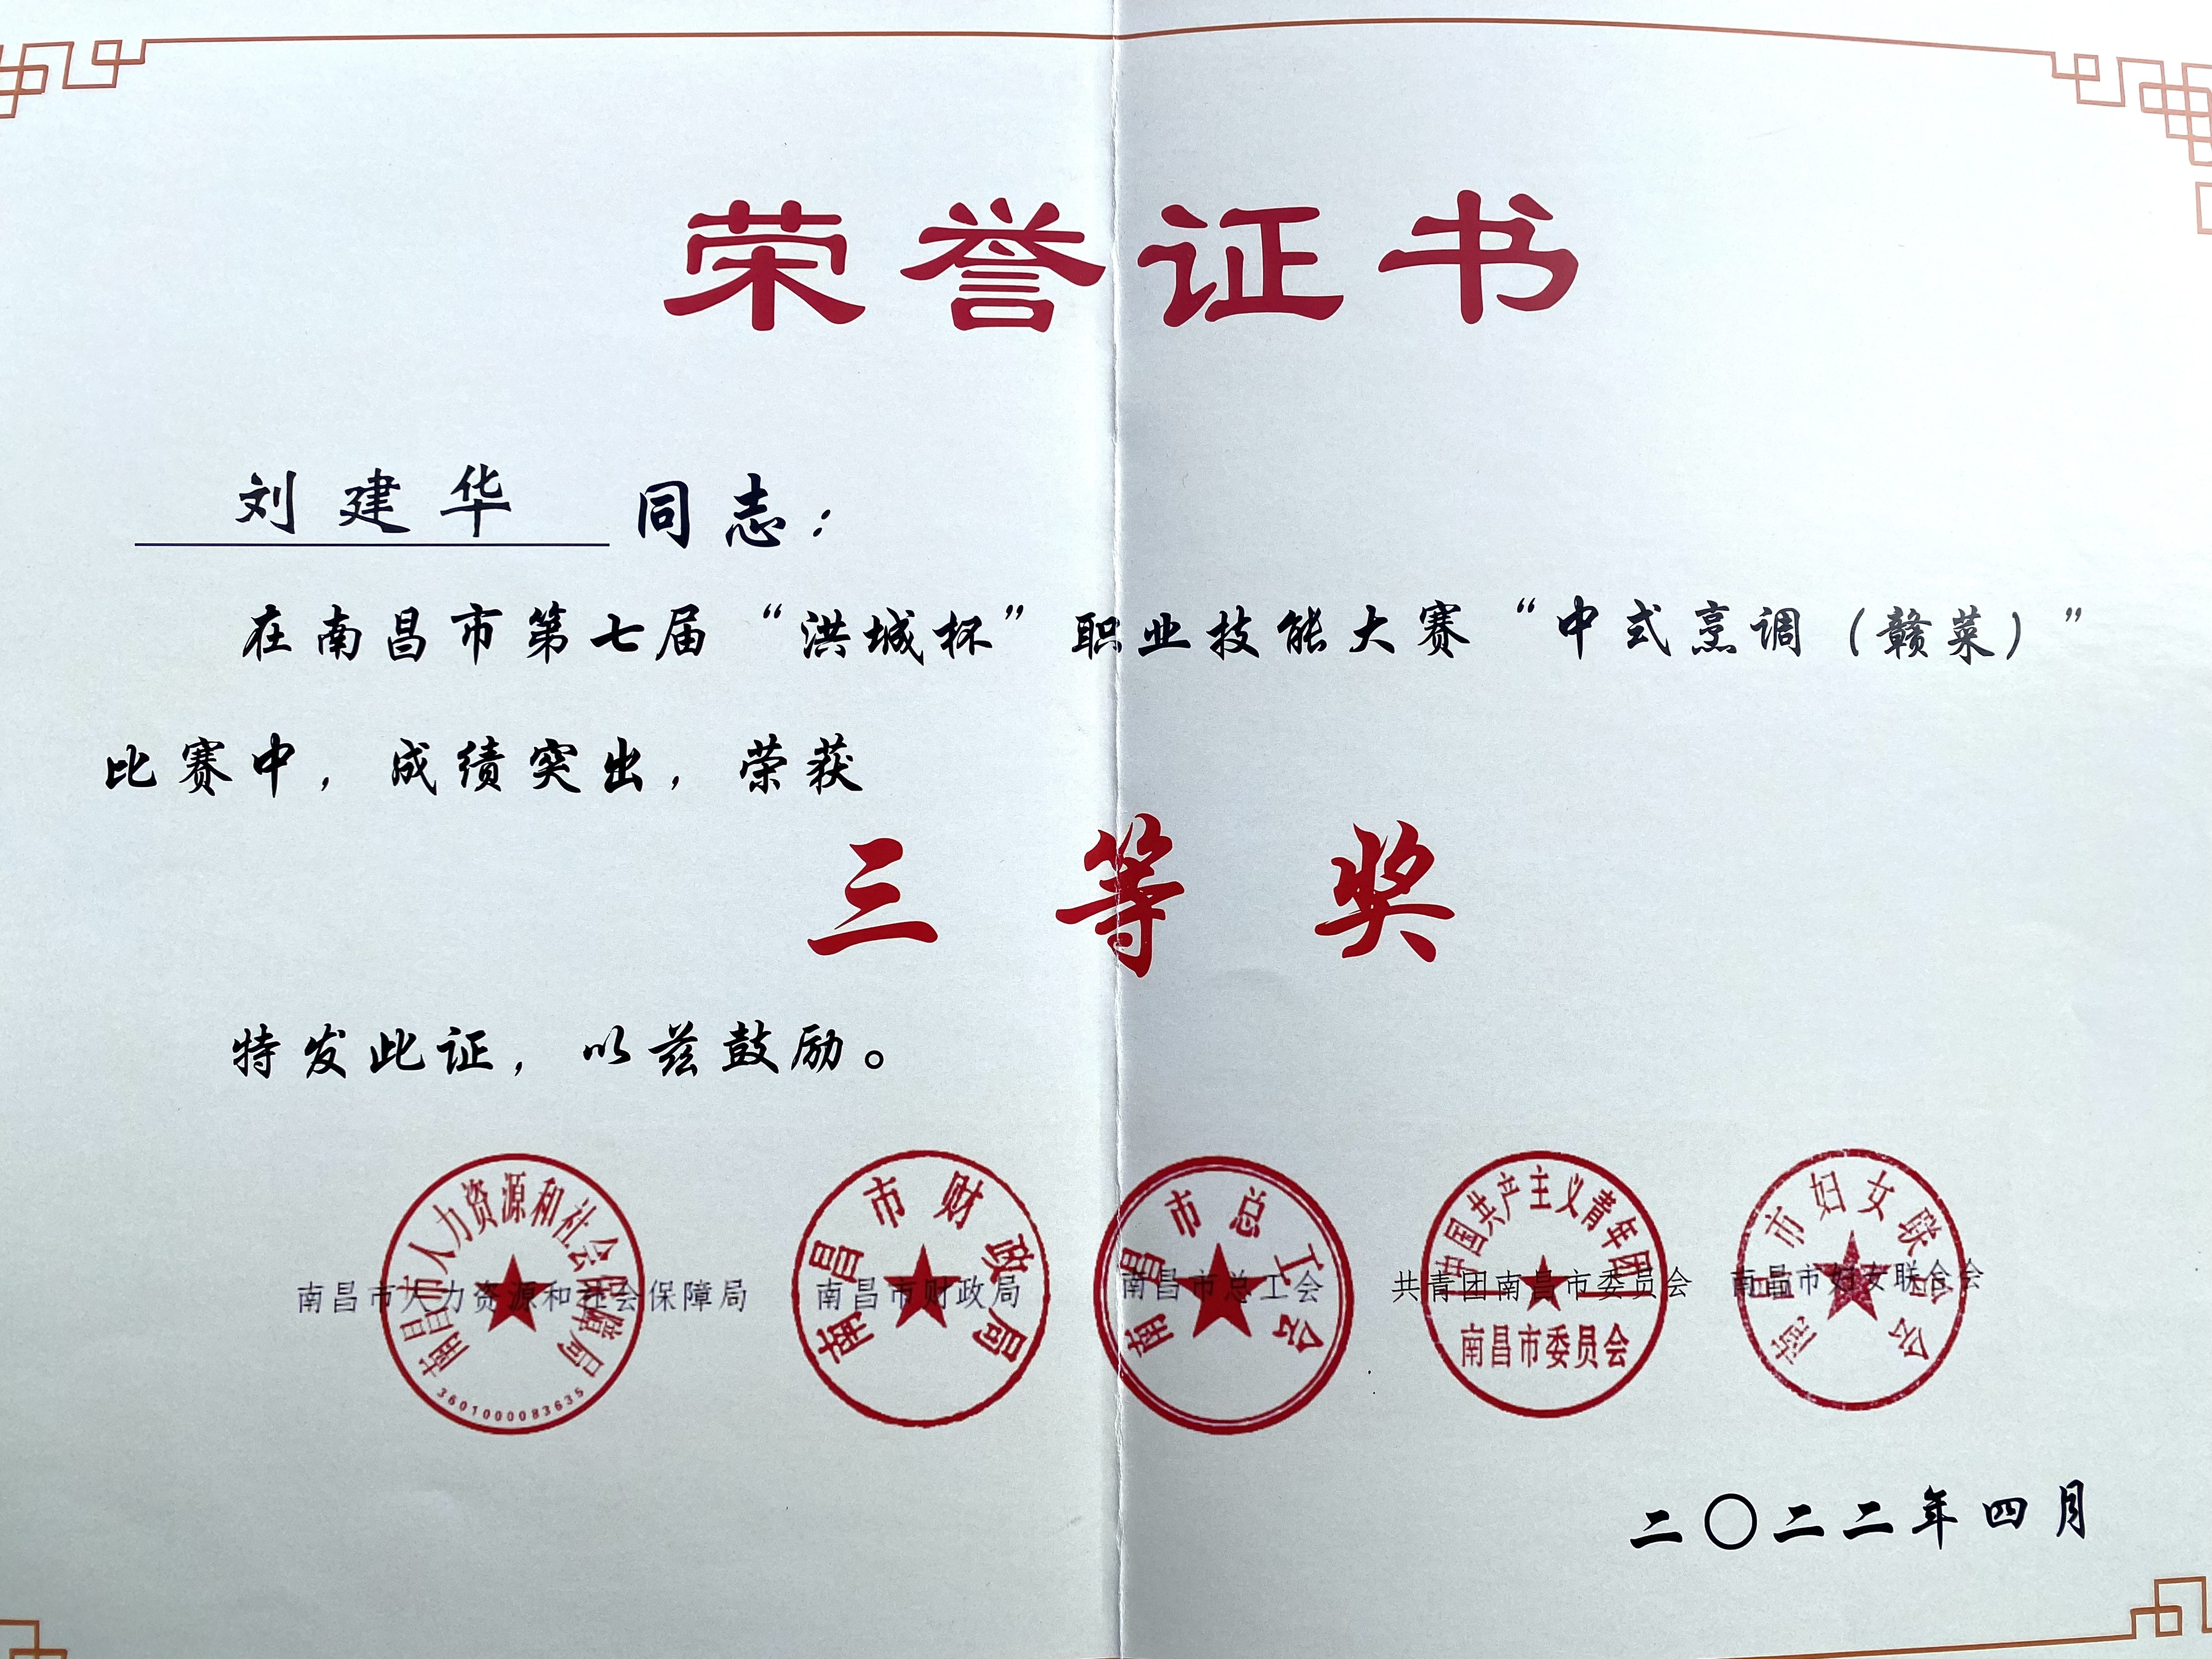 荣誉证书
刘建华 同志：
在南昌市第七届“洪城杯”职业技能大赛“中式烹调（赣菜）”
比赛中，成绩突出，荣获
三等奖
特发此证，以兹鼓励。
南昌市人力资源和社会保障局
南昌市人力资源和社会保障局
3601000083635
南昌市财政局
南昌市财政局
南昌市总工会
南昌市总工会
中国共产主义青年团
共青团南昌市委员会
南昌市委员会
南昌市妇女联合会
南昌市妇女联合会
二〇二二年四月